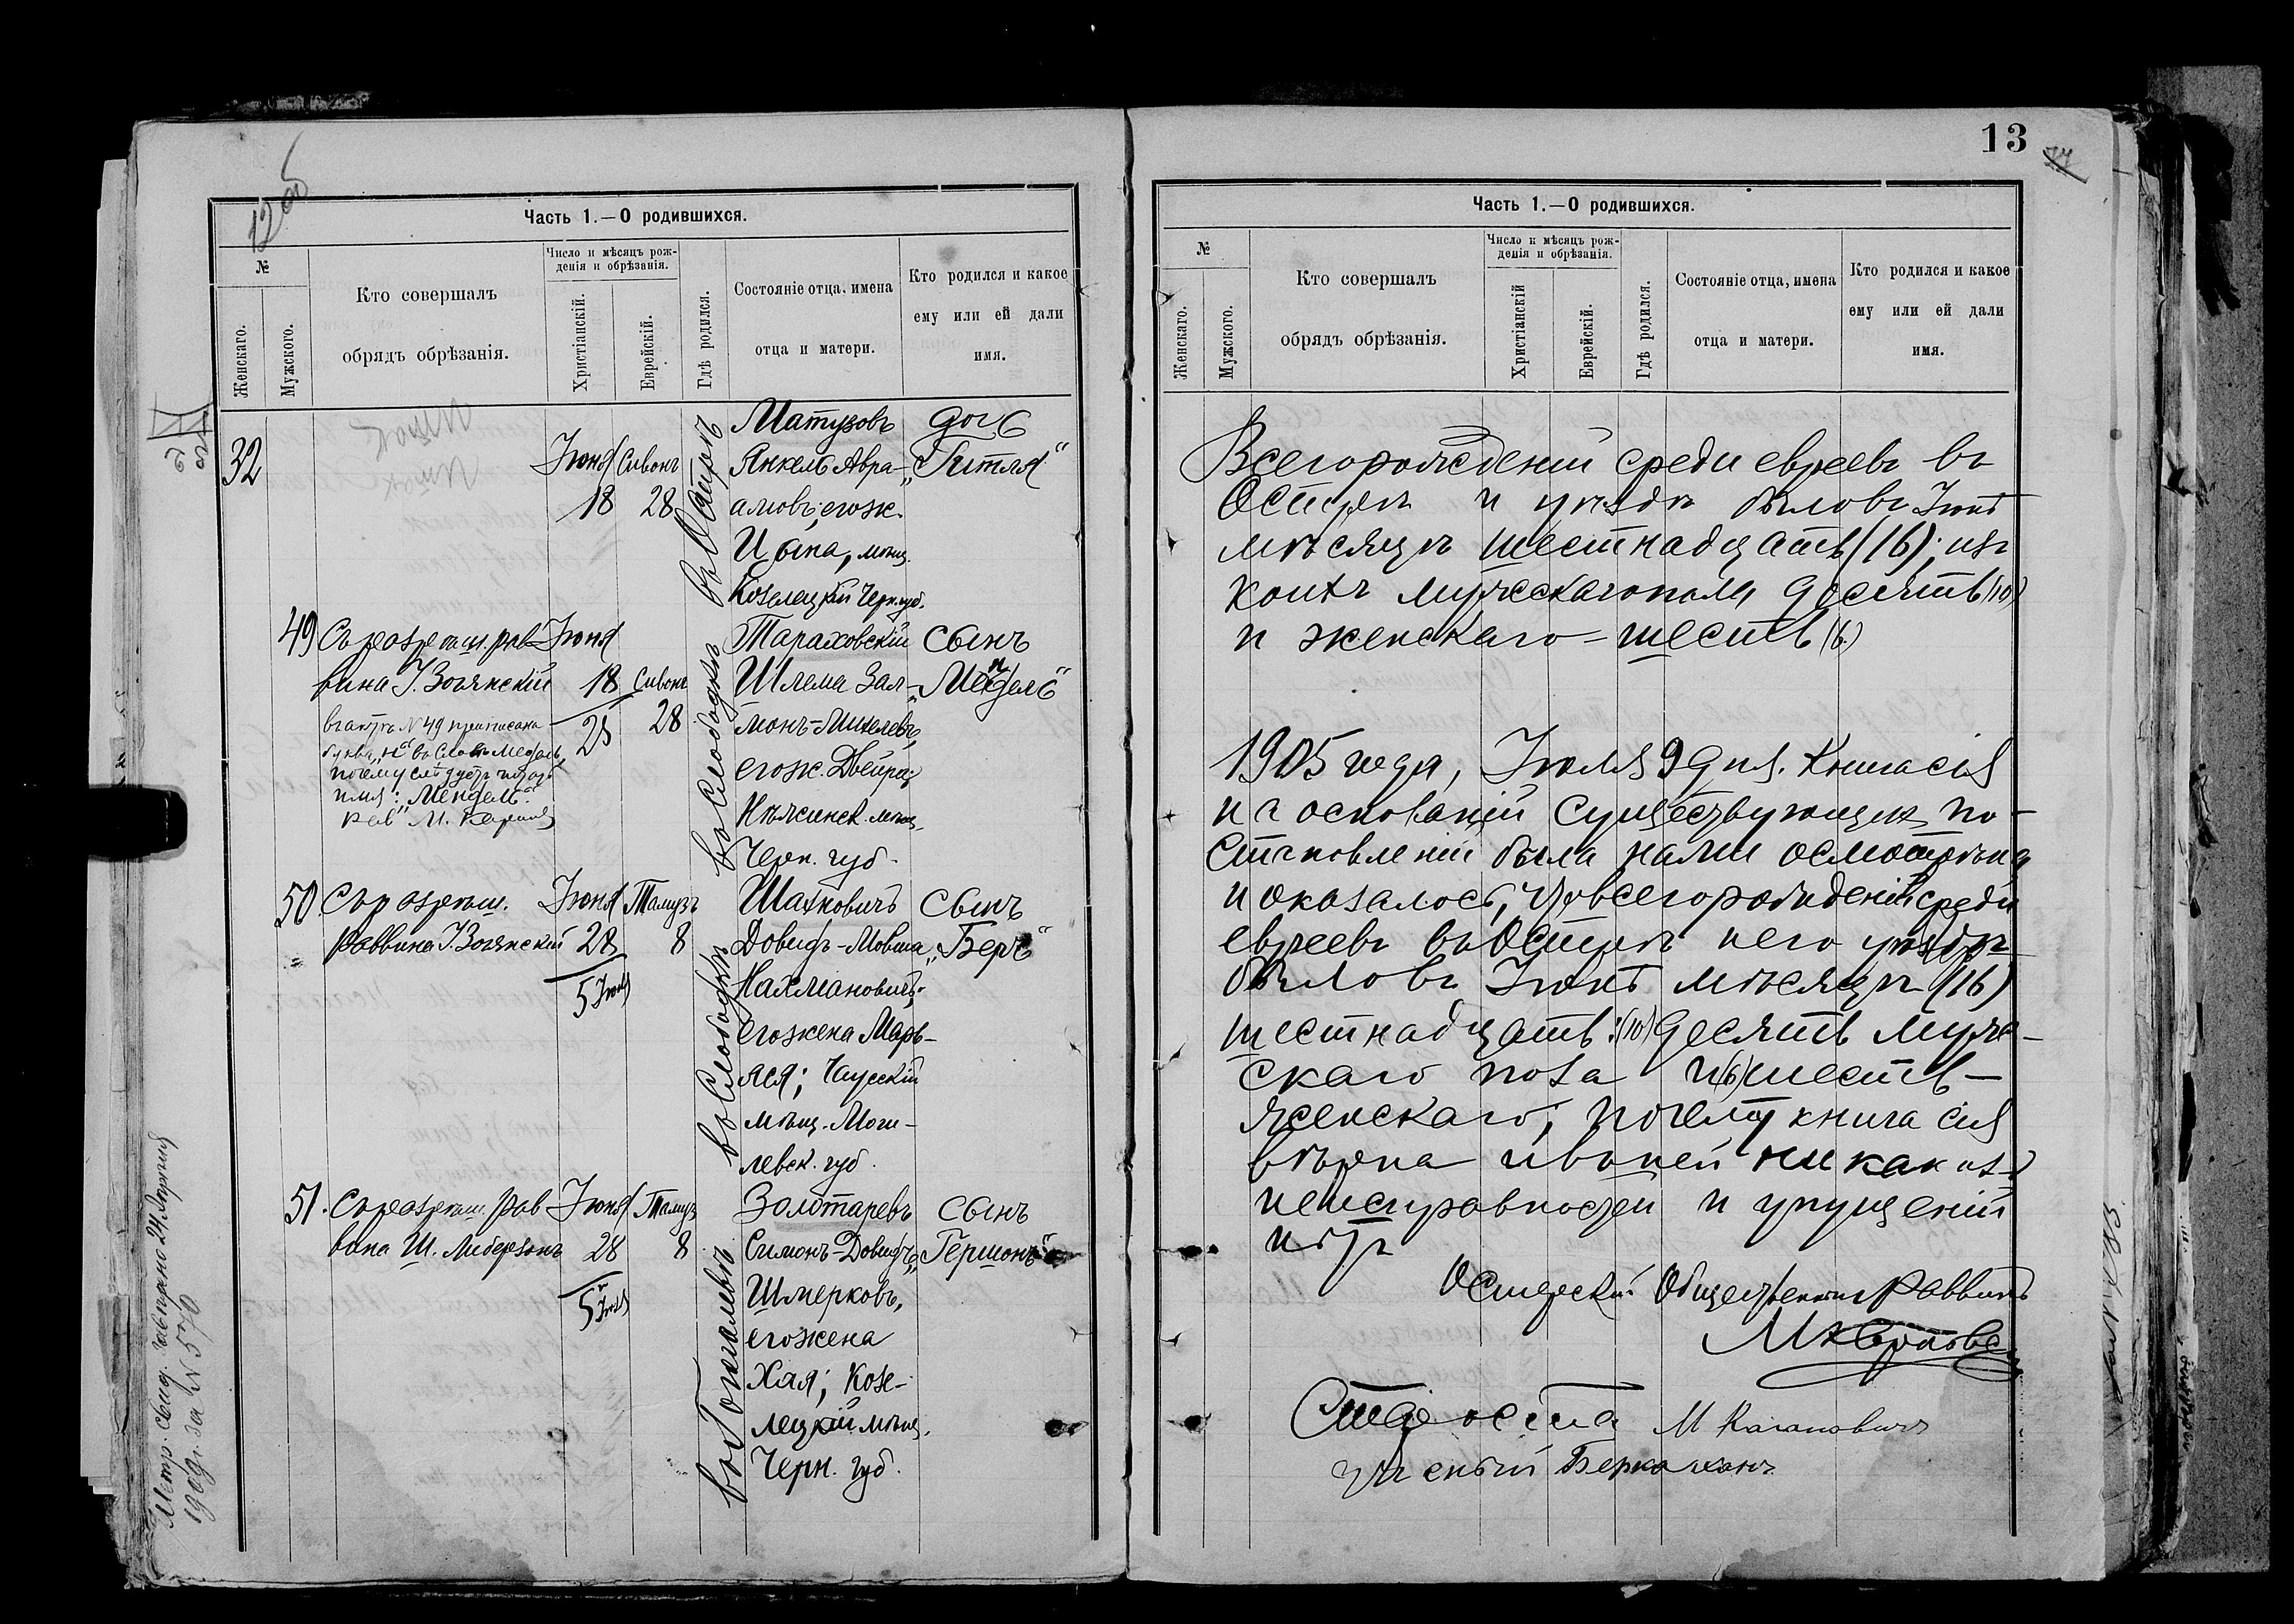 12 об
Часть 1.—О родившихся.
№
Женскаго.
Мужского.
Кто совершалъ
обрядъ обрѣзанія.
Число и мѣсяцъ рож-
денія и обрѣзанія.
Христіанскій.
Еврейскій.
Гдѣ родился.
Состояніе отца, имена
отца и матери.
Кто родился и какое
ему или ей дали
имя.
32
Іюня
18
Сивонъ
28
въ Острѣ
Матузовъ
Янкель Авра-
амовъ; его ж.
Цына, мѣщ.
Козелецкій Черн. губ.
дочь
„Гитля“
49
Съ разрѣш. рав-
вина І. Зогянскій
въ актѣ № 49 приписана
буква „н“ въ словѣ Медель,
почему слѣдуетъ читать
имя: „Мендель“.
Рав. М. Карповъ
Іюня
18
25
Сивонъ
28
въ Слободкѣ
Тараховскій
Шлема Зал-
монъ-Михелевъ,
его ж. Двейра;
Нѣжинск. мѣщ.
Черн. губ.
сынъ
„Мендель“
50.
Съ разрѣш.
раввина І. Зогянскій
Іюня
28
5 Іюля
Тамузъ
8
въ Слободкѣ
Шахновичъ
Довидъ-Мовша
Нахмановичъ;
его жена Марь-
яся; Чаусскій
мѣщ. Моги-
левск. губ.
Сынъ
„Беръ“
51.
Съ разрѣш. рав-
вина Ш. Либерзонъ
Іюня
28
5 Іюля
Тамузъ
8
Золотаревъ
Симонъ-Довидъ
Шмерковъ,
его жена
Хая; Козе-
лецкій мѣщ.
Черн. губ.
сынъ
„Гершонъ“
Метр. свид. 24 Апрѣля
1909 г. за № 570
13
Часть 1.—О родившихся.
№
Женскаго.
Мужского.
Кто совершалъ
обрядъ обрѣзанія.
Число и мѣсяцъ рож-
денія и обрѣзанія.
Христіанскій
Еврейскій.
Гдѣ родился.
Состояніе отца, имена
отца и матери.
Кто родился и какое
ему или ей дали
имя.
Всего рожденій среди евреевъ въ
Острѣ и уѣздѣ было въ Іюнѣ
мѣсяцѣ шестнадцать (16); изъ
коихъ мужескаго пола десять (10)
и женскаго – шесть (6)
1905 года, Іюля 9 дня. Книга сія
на основаніи существующихъ по-
становленій была нами осмотрѣна
и оказалось, что всего рожденій среди
евреевъ въ Острѣ и его уѣздѣ
было въ Іюнѣ мѣсяцѣ (16)
шестнадцать: (10) десять муже-
скаго пола и (6) шесть –
женскаго; почему книга сія
вѣрна и въ ней никакихъ
неисправностей и упущеній
нѣтъ
Остерскій Общественный Раввинъ
М Карповъ
Староста М Кагановичъ
ученый Берка